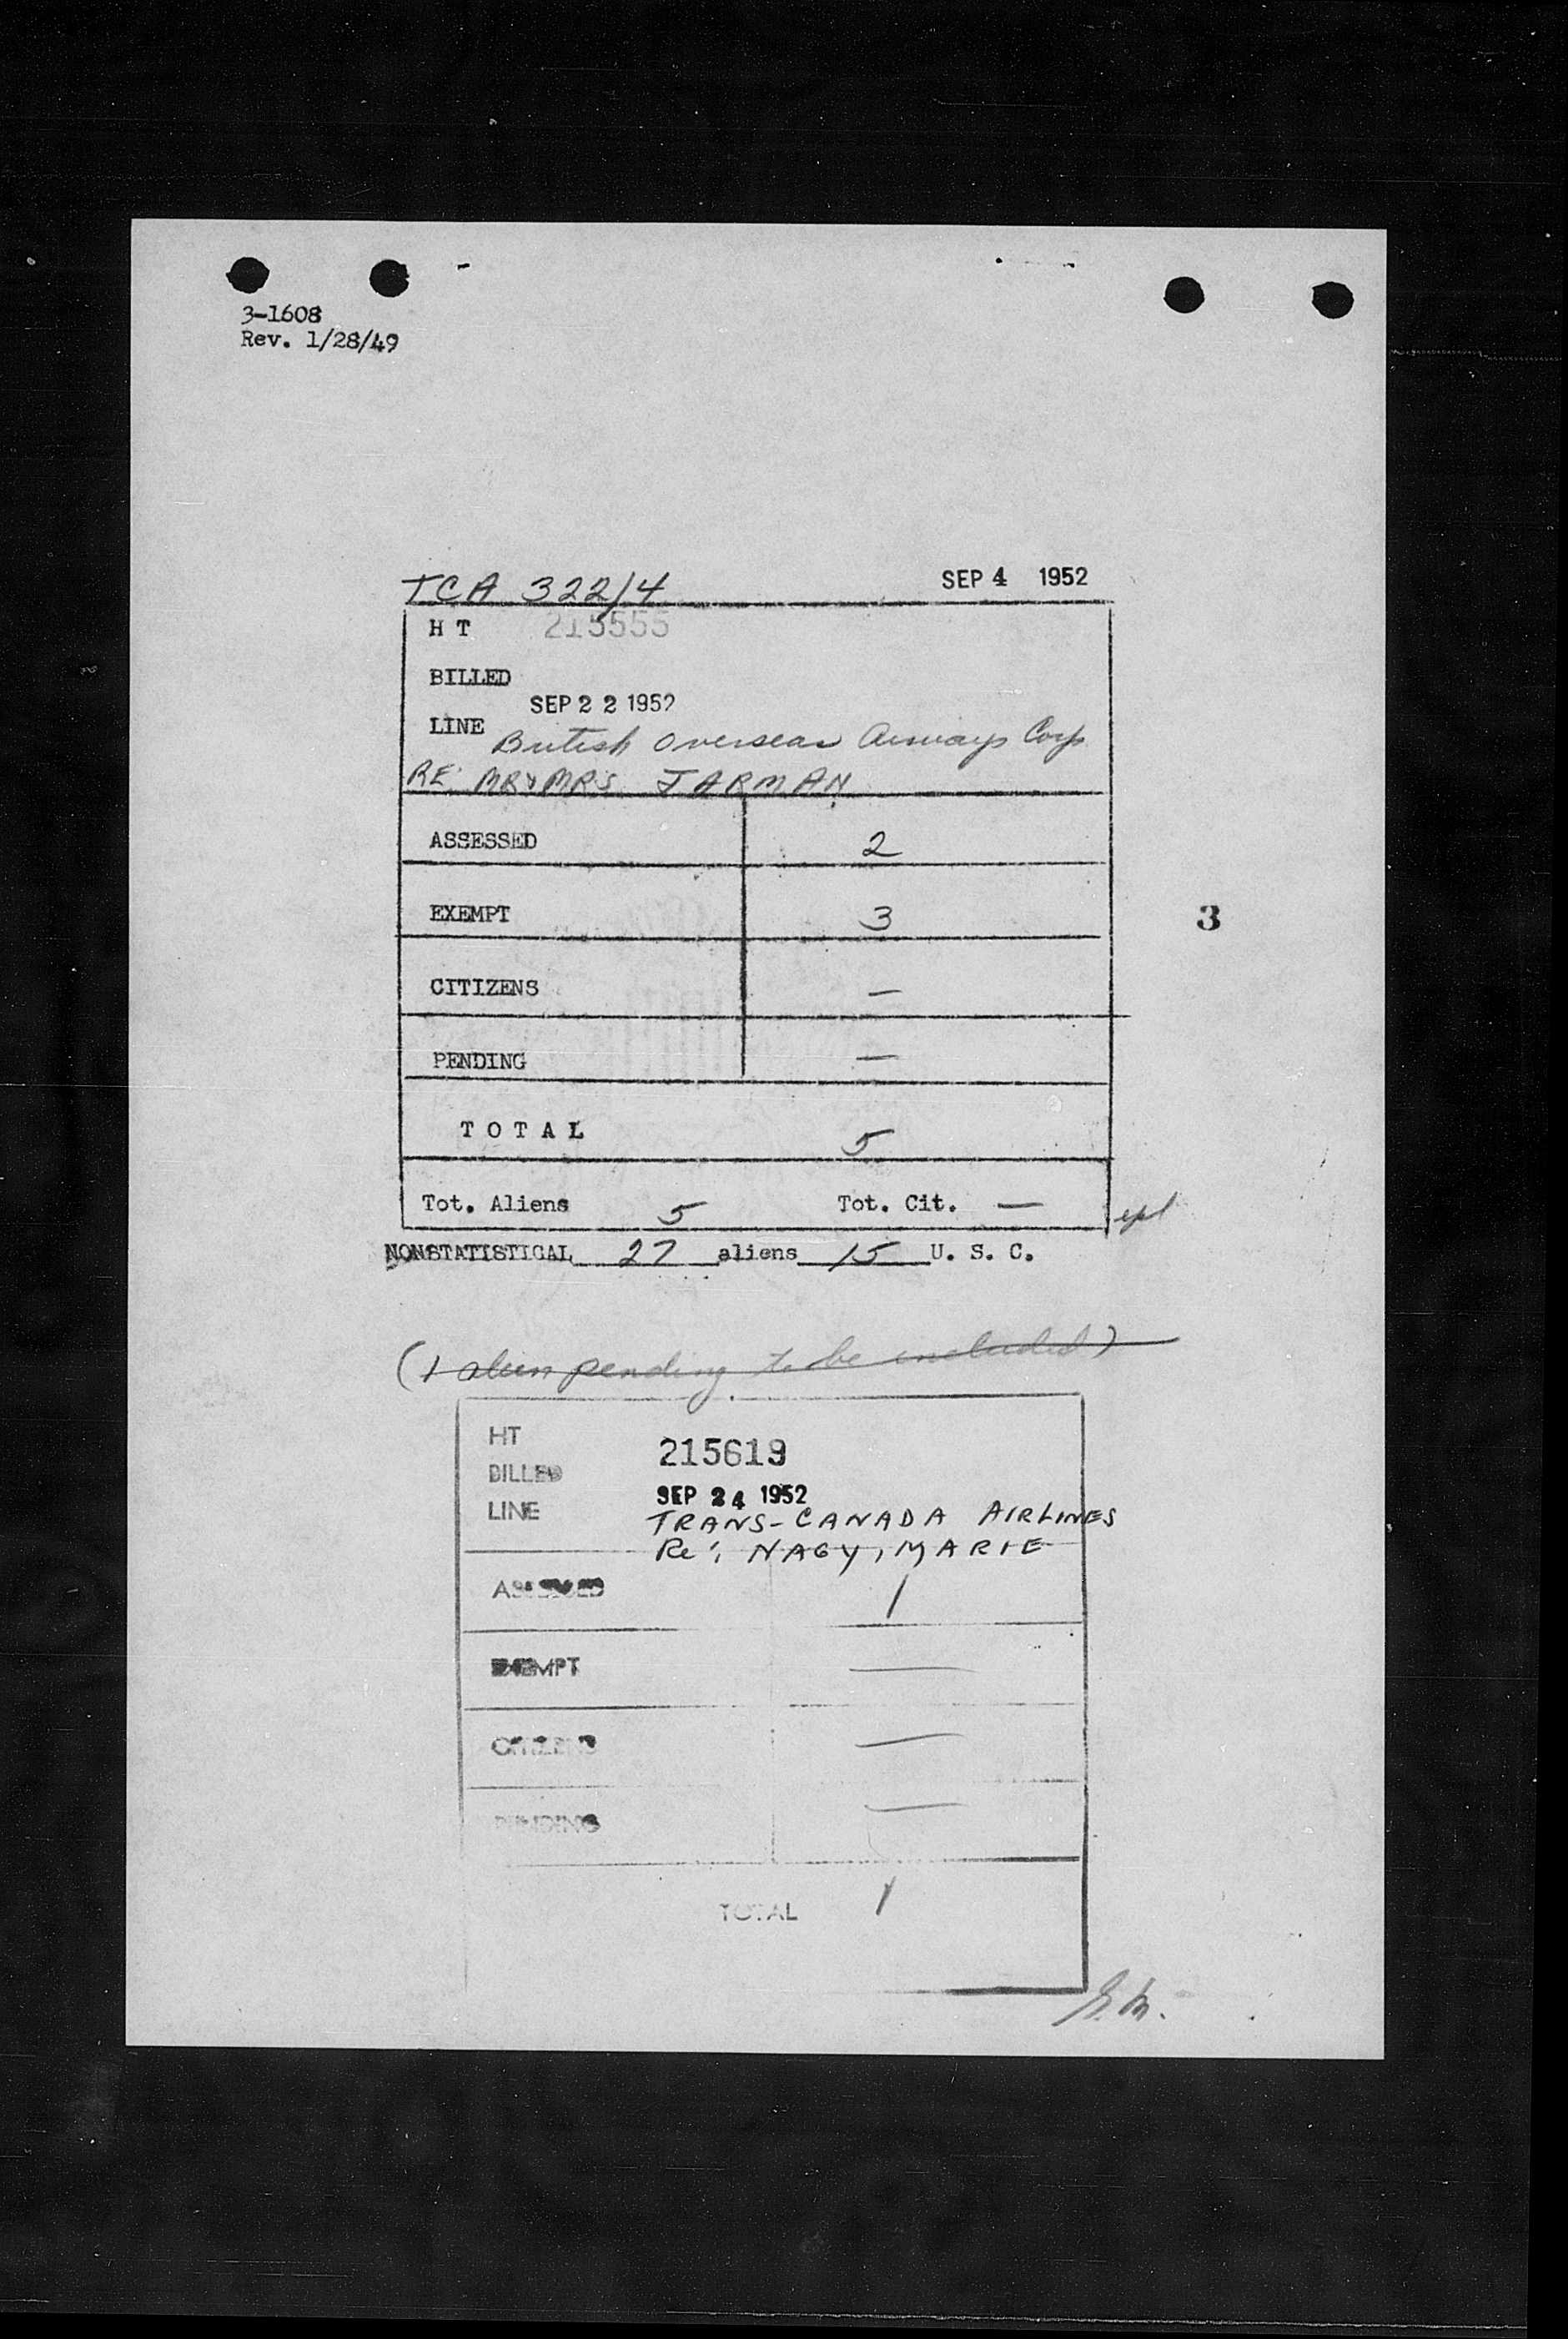 3-1608
Rev. 1/28/49
TCA 322/4 SEP 4 1952
H T 215555
BILLED
SEP 22 1952
LINE British Overseas Airways Corp
RE: MR & MRS JARMAN
ASSESSED 2
EXEMPT 3
3
CITIZENS —
PENDING —
TOTAL 5
Tot. Aliens 5 Tot. Cit. —
NONSTATISTICAL 27 aliens 15 U. S. C.
(1 alien pending to be included)
HT 215619
BILLED
SEP 24 1952
LINE TRANS-CANADA AIRLINES
Re: NAGY, MARIE
ASSESSED 1
EXEMPT —
CITIZENS —
PENDING —
TOTAL 1